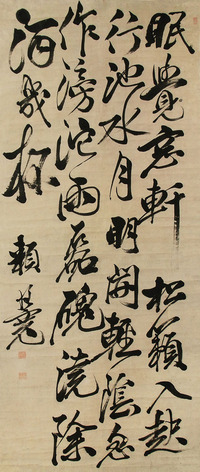 眠覺窓軒松籟入起
行池水月明開輕陰忽
作滂沱雨磊磈澆除
酒幾杯
賴